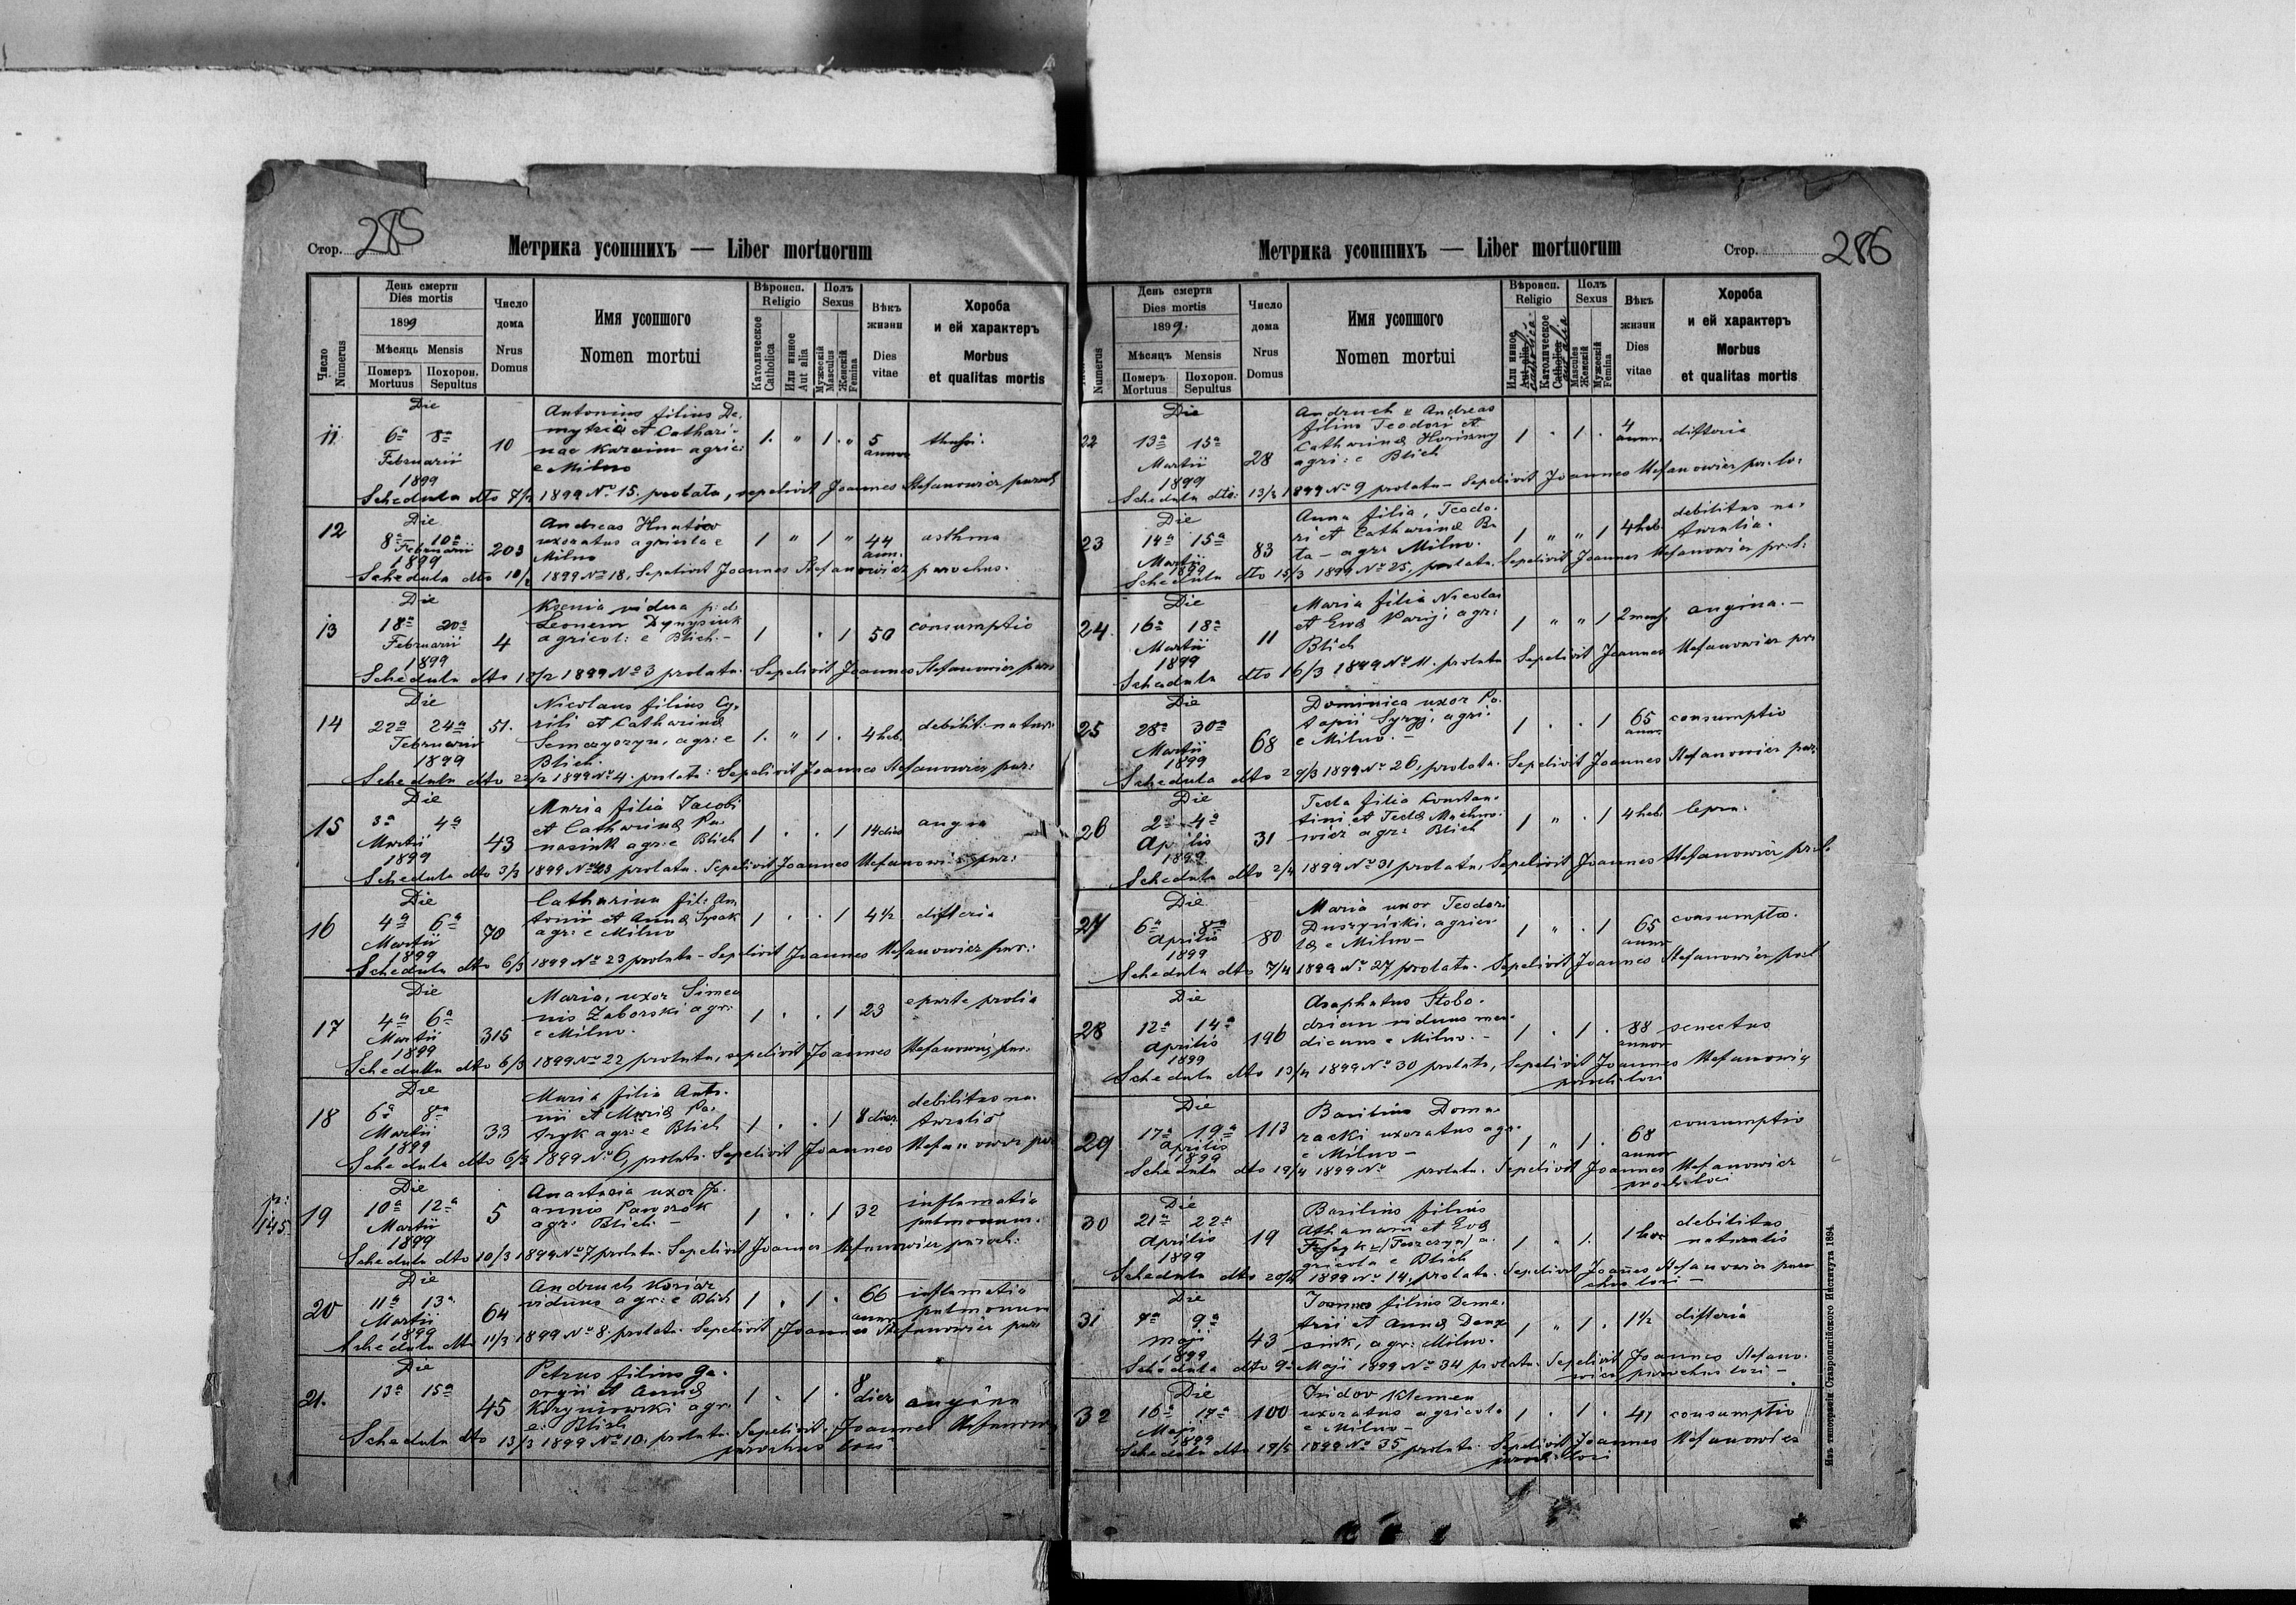 Стор. 285
Метрика усопшихъ — Liber mortuorum
Число Numerus
День смерти
Dies mortis
1899
Мѣсяць Mensis
Померъ Mortuus
Похорон. Sepultus
Число дома
Nrus Domus
Имя усопшого
Nomen mortui
Вѣроисп. Religio
Католическое Catholica
Или инное Aut alia
Полъ Sexus
Мужескій Masculus
Женскій Femina
Вѣкъ жизни
Dies vitae
Хороба и ей характеръ
Morbus et qualitas mortis
11 Die 6a 8a Februarii 1899 10
Antonius filius De-
mytrii et Cathari-
nae agric:
e Milno
1. " 1. " 5 annor
Schedula dto 7/2 1899 No 15. prolata, sepelivit Joannes Stefanowicz paroch
12 Die 8a 10a Februarii 1899 203
Andreas
uxoratus agricola e
Milno
1 " 1 " 44 ann. asthma
Schedula dto 10/2 1899 No 18, Sepelivit Joannes Stefanowicz parochus.
13 Die 18a 20a Februarii 1899 4
Ksenia vidua p: d:
Leonem
agricol: e Blich. -
1 . 1 50 consumptio
Schedula dto 1899 No 3 prolata. Sepelivit Joannes Stefanowicz par:
14 Die 22a 24a Februarii 1899 51.
Nicolaus filius Cy-
rili et Catharinae
agr: e
Blich.
1. " 1. . 4 heb. debilit: natur:
Schedula dto 1899 No 4. prolata: Sepelivit Joannes Stefanowicz par:
15 Die 3a 4a Martii 1899 43
Maria filia Jacobi
et Catharinae Pa-
nasiuk agr: e Blich
1 . . 1 14 dies
Schedula dto 3/3 1899 No prolata. Sepelivit Joannes Stefanowicz par:
16 Die 4a 6a Martii 1899 70
Catharina fil: An-
tonii et Annae Sysak
agr: e Milno
1 . . 1 4½ difteria
Schedula dto 6/3 1899 No 23 prolata - Sepelivit Joannes Stefanowicz par:
17 Die 4a 6a Martii 1899 315
Maria, uxor Simeo
nis Zaborski agr:
e Milno.
1 . . 1 23 e parte prolis
Schedula dto 6/3 1899 No 22 prolata, sepelivit Joannes Stefanowicz par:
18 Die 6a 8va Martii 1899 33
Maria filia Anto-
nii et Mariae Pa-
tryk agr: e Blich
1 . . 1 8 dier debilitas na-
turalis
Schedula dto 6/3 1899 No 6, prolata. Sepelivit Joannes Stefanowicz par
p: 145
19 Die 10a 12a Martii 1899 5
Anastasia uxor Jo-
annis
agr: Blich. -
1 . . 1 32 inflamatio
pulmonum.
Schedula dto 10/3 1899 No 7 prolata. Sepelivit Joannes Stefanowicz paroch:
20 Die 11a 13a Martii 1899 64
Andruch
viduus agr: e Blich
1 . 1 . 66 annor inflamatio
pulmonum
Schedula dto 11/3 1899 No 8 prolata. Sepelivit Joannes Stefanowicz par:
21. Die 13a 15a 45
Petrus filius Ge-
orgii et Annae
agr:
e: Blich
1 . 1 . 8 dier angina
Schedula dto 13/3 1899 No 10. prolata. Sepelivit Joannes Stefanowicz
parochus loci
Метрика усопшихъ — Liber mortuorum
Стор. 286
Numerus
День смерти
Dies mortis
1899.
Мѣсяцъ Mensis
Померъ Mortuus
Похорон. Sepultus
Число дома
Nrus Domus
Имя усопшого
Nomen mortui
Вѣроисп. Religio
Или инное Aut alia catholica
Католическое Catholica aut alia
Полъ Sexus
Masculus Женскій
Мужескій Femina
Вѣкъ жизни
Dies vitae
Хороба и ей характеръ
Morbus et qualitas mortis
22 Die 13a 15a Martii 1899 28
Andruch v Andreas
filius Teodori et
Catharinae
agri: e Blich
1 . 1 . 4 annor. difteria
Schedula dto: 13/3 1899 No 9 prolata - Sepelivit Joannes Stefanowicz par: lo:
23 Die 14a 15a Martii 1899 83
Anna filia, Teodo-
ri et Catharinae Ba
ta - agr: Milno.
1 " " 1 4 heb. debilitas na-
turalis.
Schedula dto 15/3 1899 No 25, prolata. Sepelivit Joannes Stefanowicz par: l:
24. Die 16a 18a Martii 1899 11
Maria filia Nicolai
et Evae agr:
Blich
1 " " 1 2 mens, angina. -
Schedula dto 16/3 1899 No 11. prolata Sepelivit Joannes Stefanowicz par:
25 Die 28a 30a Martii 1899 68
Dominica uxor Po-
tapii agri:
e Milno. -
1 . . 1 65 annor consumptio
Schedula dto 29/3 1899 No 26, prolata. Sepelivit Joannes Stefanowicz par:
26 Die 2a 4a Aprilis 1899 31
Tecla filia Constan-
tini et Teclae
agr: Blich
1 " . 1 4 heb. lepra.
Schedula dto 2/4 1899 No 31 prolata, Sepelivit Joannes Stefanowicz par: l.
27 Die 6a 8va Aprilis 1899 80
Maria uxor Teodori
Duszyński, agrico-
lae e Milno -
1 " . 1 65 annor consumptio.
Schedula dto 7/4 1899 No 27 prolata. Sepelivit Joannes Stefanowicz par: l
28 Die 12a 14a Aprilis 1899 196
Asaphatus Slobo-
dzian viduus men-
dicans e Milno. -
1 . 1 . 88 annor senectus
Schedula dto 13/4 1899 No 30 prolata, Sepelivit Joannes Stefanowicz
paroch: loci
29 Die 17a 19a Aprilis 1899 113
Basilius Doma-
racki uxoratus agr:
e Milno -
1 " 1 . 68 annor consumptio
Schedula dto 19/4 1899 No prolata. Sepelivit Joannes Stefanowicz
paroch: loci
30 Die 21a 22a Aprilis 1899 19
Basilius filius
Athanasii et Evae
a-
gricola e Blich
1 " 1. 1 hor debilitas
naturalis
Schedula dto 1899 No 14, prolata. Sepelivit Joannes Stefanowicz paro-
chus loci -
31 Die 9a Maji 1899 43
Joannes filius Deme-
trii et Annae
agr: Milno.
1 " 1 . 1½ difteria
Schedula dto 9. Maji 1899 No 34 prolata. Sepelivit Joannes Stefano-
wicz parochus loci -
32 Die 16a 17a Maji 1899 100
Isidor Klemen
uxoratus agricola
e Milno -
1 . 1 . 41 consumptio
Schedula dto 17/5 1899 No 35 prolata. Sepelivit Joannes Stefanowicz
paroch: loci
Изъ типографіи Ставропигійского Института 1894.